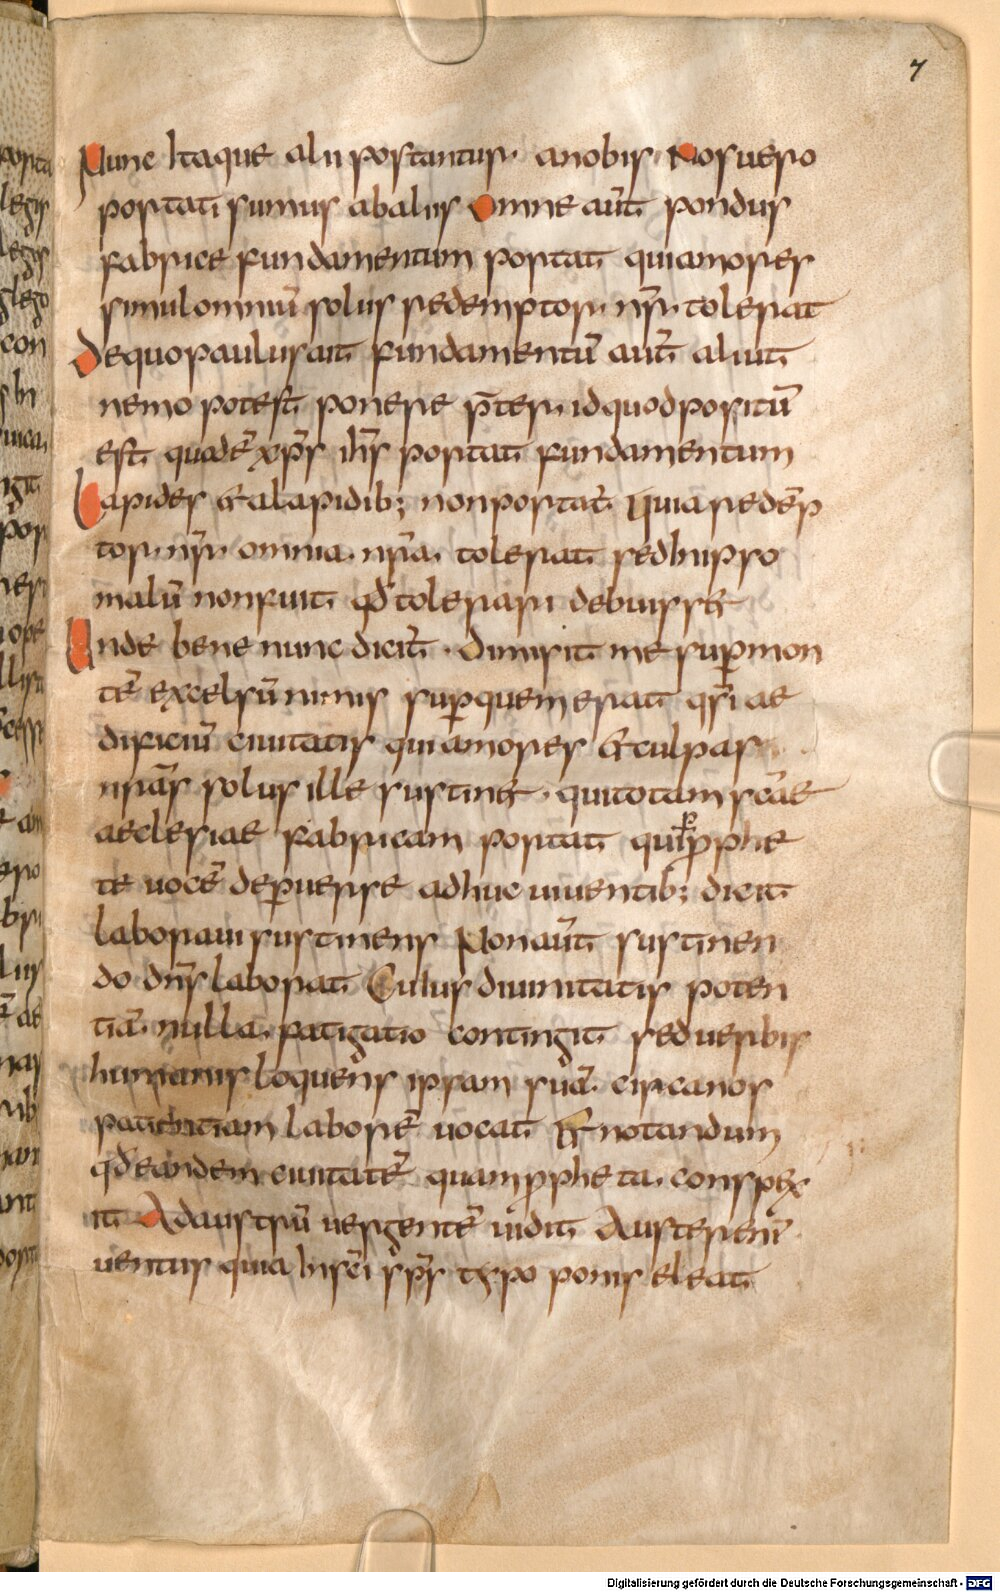 7
Nunc Itaque alii portantur· anobis· Nos uero
portati sumus abaliis Omne aūt pondus
fabrice fundamentum portat quia mores
simul omniū solus redemptor· nr̄· tolerat
De quo paulus ait fundamentū aut̄ aliut
nemo potest ponere p̄ter· id quod positū
est quod ē xp̄s ih̄s portat fundamentum
Lapides & a lapidib; non portat̄ Quia redēp
tor· nr̄· omnia· nr̄a· tolerat sed In ipso
malū non fuit qd̄ tolerari debuiss&
Unde bene nunc dicit̄· dimisit me sup̄ mon
tē excelsū nimis sup̄ quem erat qs̄i ae
dificiū ciuitatis quia mores & culpas
nr̄as solus ille sustin&· qui totam sc̄ae
aeclesiae fabricam portat qui p̄ p̄phe
te uocē de p̄uerse adhuc uiuentib; dicit
laboraui sustinens Non aūt sustinen
do dn̄s laborat Cuius diuinitatis poten
tiā· nulla· fatigatio contingit sed uerbis
humanis loquens ipsam suā· circa nos
patientiam laborē uocat & notandum
qd̄ eandem ciuitatē quam p̄pheta· consp&
it Ad austrū uergentē uidit Auster enī
uentus quia In sc̄i sp̄s typo ponis eleat
legis
con
Digitalisierung gefördert durch die Deutsche Forschungsgemeinschaft - DFG